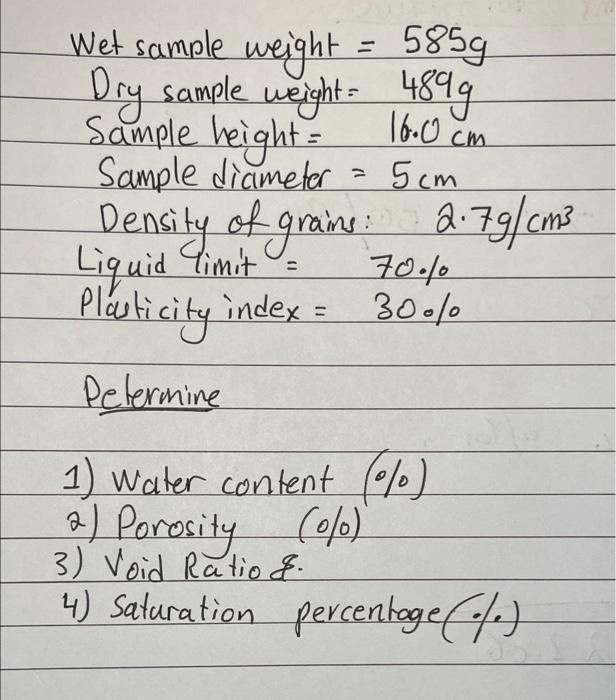 Wet sample weight = 585g
Dry sample weight = 489g
Sample height = 16.0 cm
Sample diameter = 5 cm
Density of grains: 2.7g/cm³
Liquid limit = 70%
Plasticity index = 30%
Determine
1) Water content (%)
2) Porosity (%)
3) Void Ratio &.
4) Saturation percentage (%)